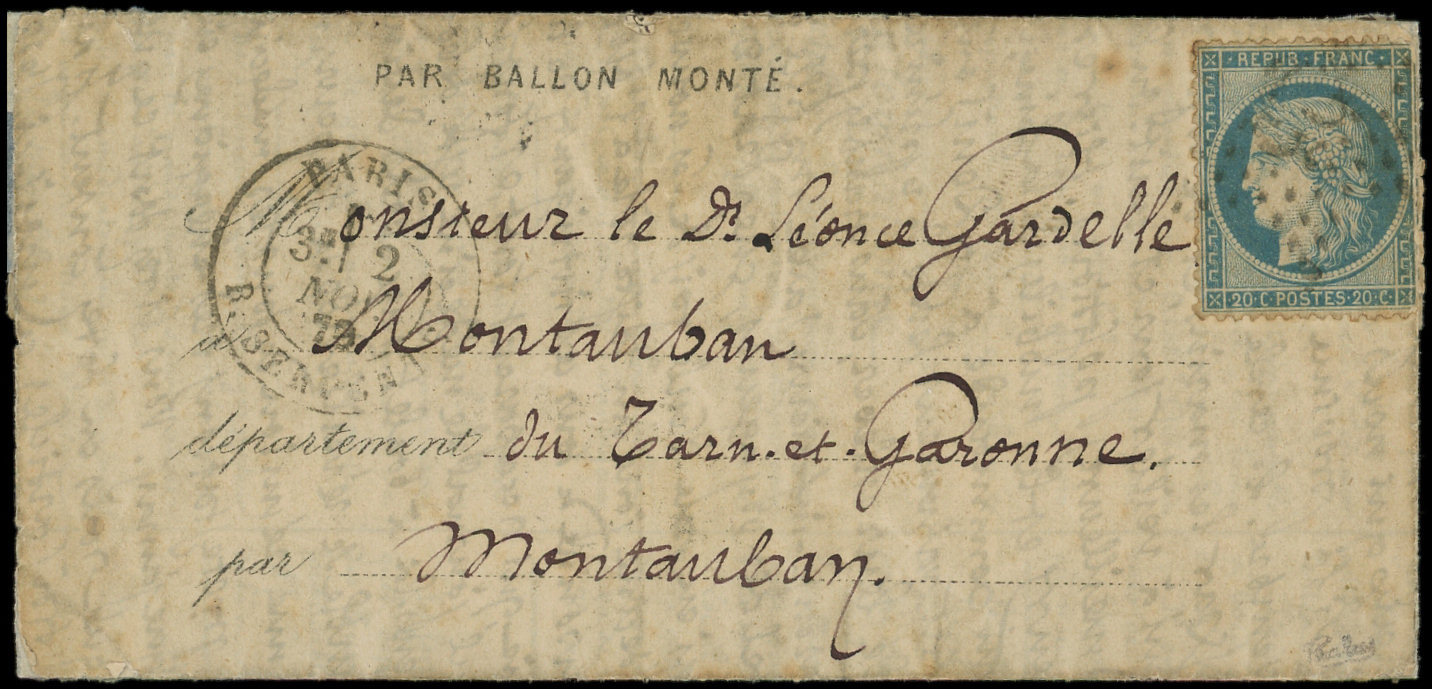 PAR BALLON MONTÉ.
REPUB. FRANC.
20.C POSTES 20.C
PARIS
3E 2
NOV.
R. SERPENTE
Monsieur le Dr. Léonce Gardelle
à Montauban
département du Tarn-et-Garonne.
par Montauban.